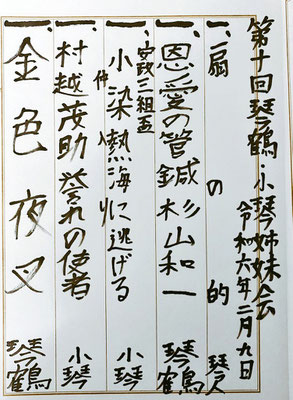 第十回琴鶴・小琴姉妹会
令和六年二月九日
一、扇の的 琴人
一、恩愛の管鍼 杉山和一 琴鶴
一、安政三組盃
小染熱海に逃げる 小琴
仲入り
一、村越茂助 誉れの使者 小琴
一、金色夜叉 琴鶴